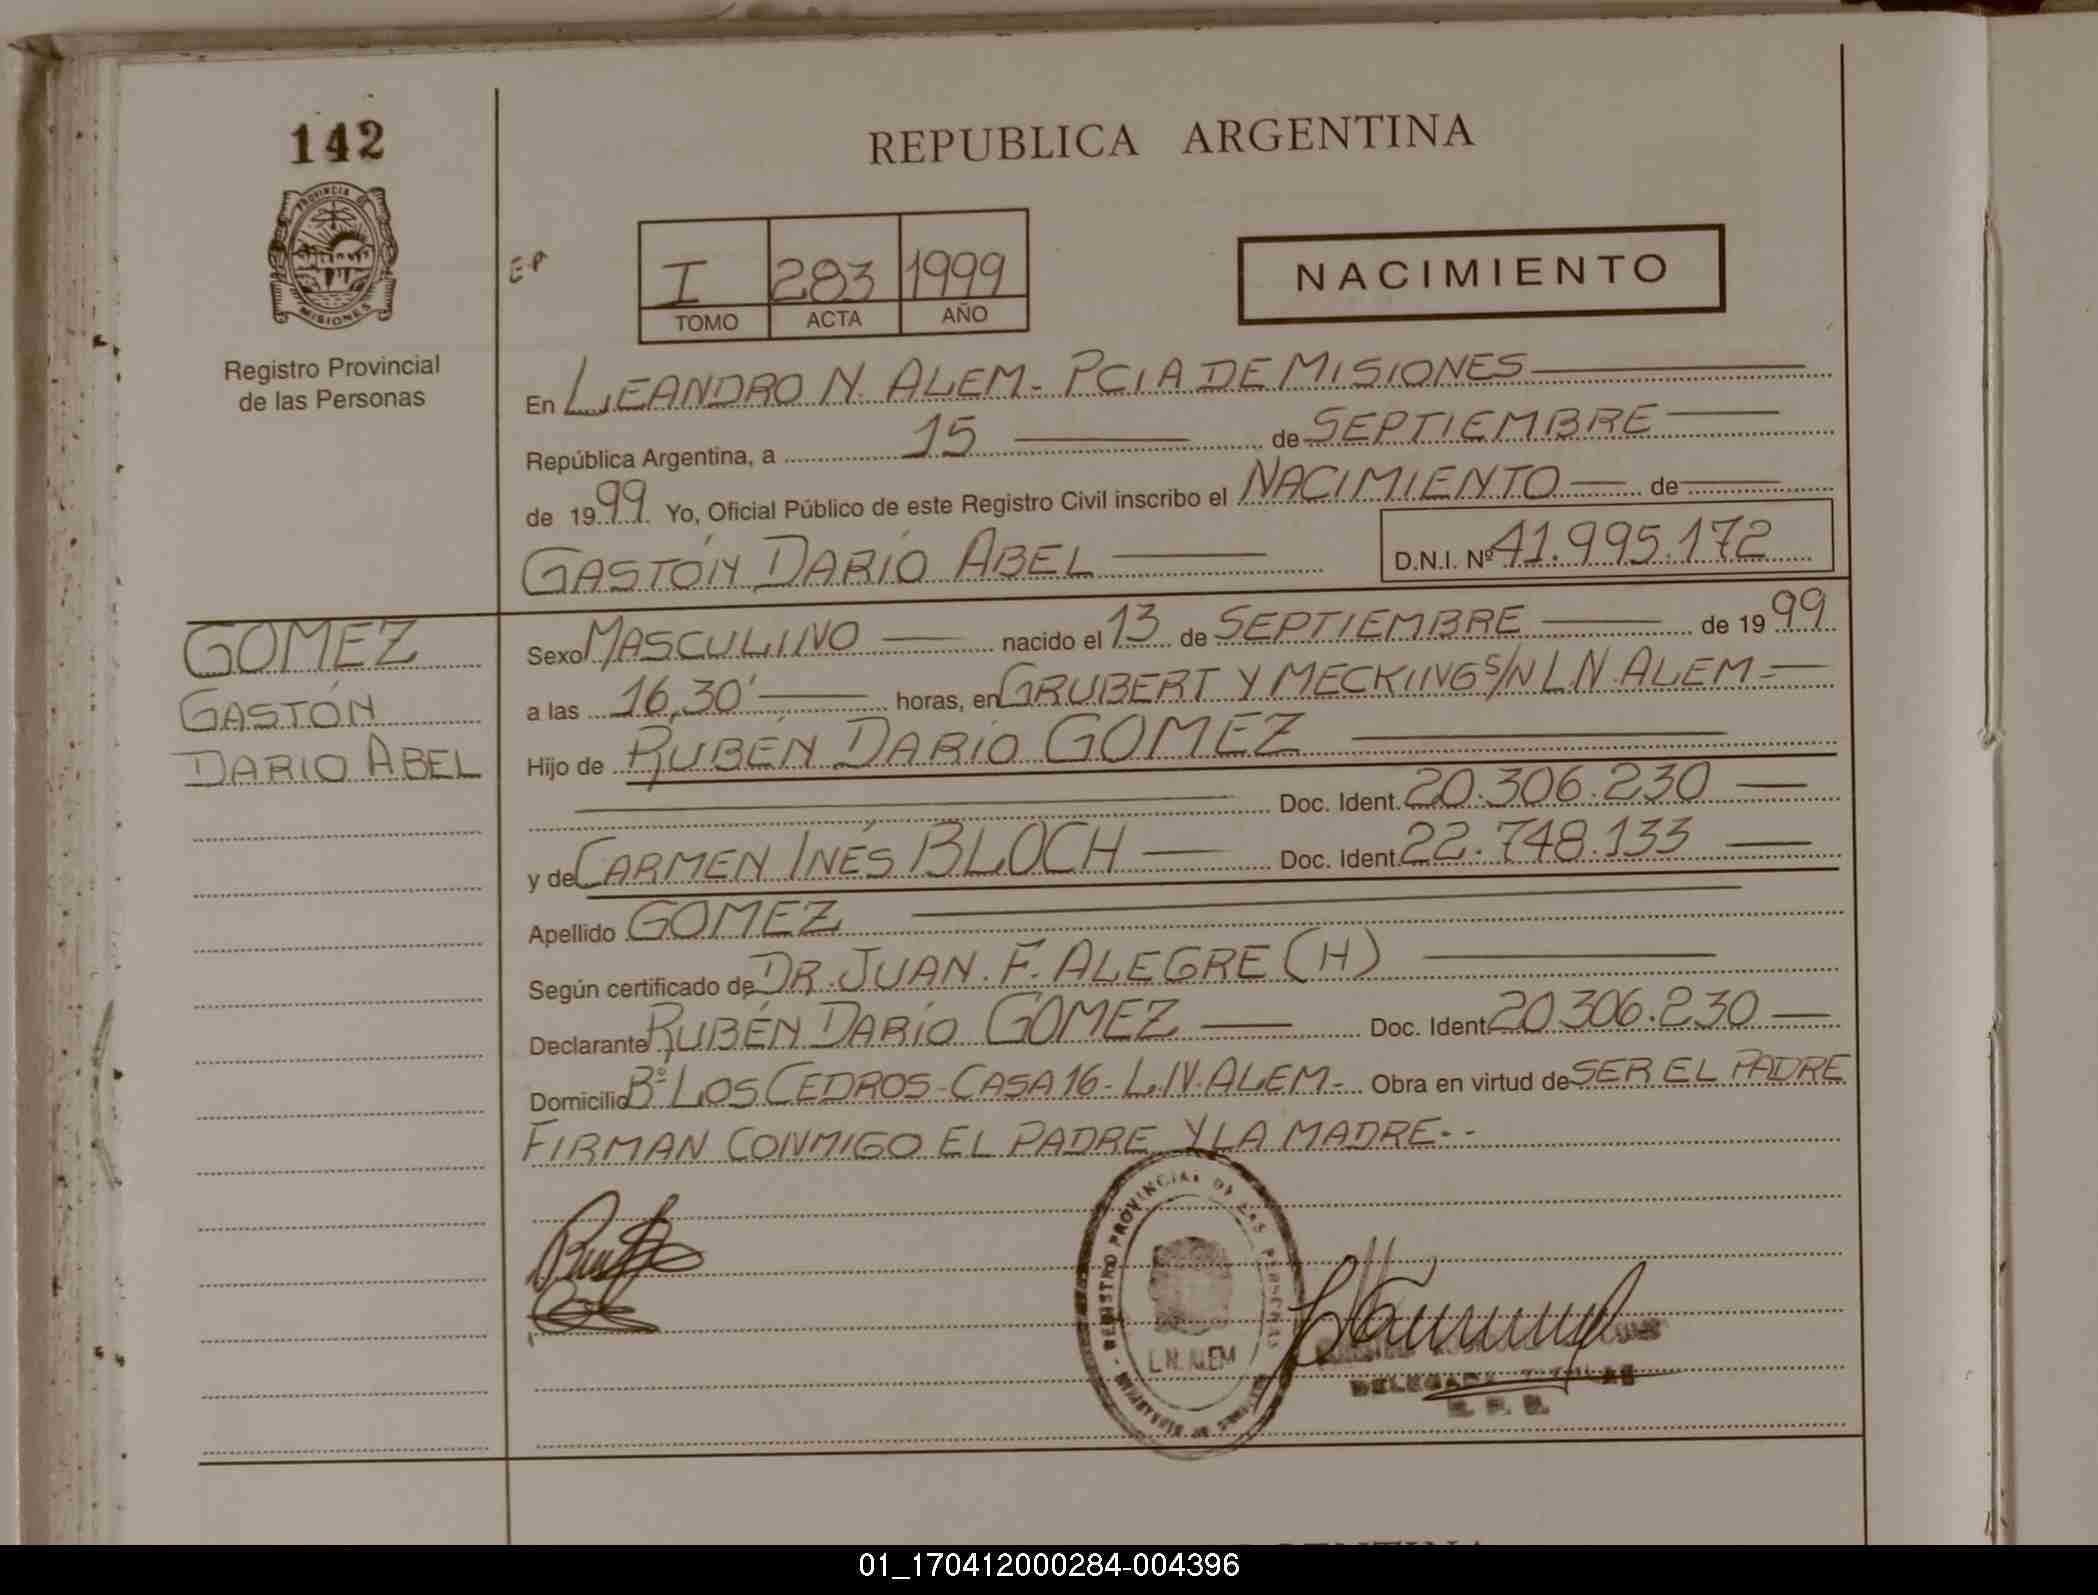 142
PROVINCIA DE
MISIONES
Registro Provincial
de las Personas
REPUBLICA ARGENTINA
EP
I 283 1999
TOMO ACTA AÑO
NACIMIENTO
En LEANDRO N. ALEM - PCIA DE MISIONES
República Argentina, a 15 de SEPTIEMBRE
de 1999 Yo, Oficial Público de este Registro Civil inscribo el NACIMIENTO de
GASTÓN DARÍO ABEL D.N.I. Nº 41.995.172
GOMEZ
GASTÓN
DARIO ABEL
Sexo MASCULINO nacido el 13 de SEPTIEMBRE de 1999
a las 16,30' horas, en GRUBERT Y MECKING S/N L.N. ALEM -
Hijo de RUBÉN DARÍO GOMEZ
Doc. Ident. 20.306.230
y de CARMEN INÉS BLOCH Doc. Ident. 22.748.133
Apellido GOMEZ
Según certificado de DR. JUAN. F. ALEGRE (H)
Declarante RUBÉN DARÍO GOMEZ Doc. Ident. 20.306.230
Domicilio Bº LOS CEDROS - CASA 16 - L.N. ALEM - Obra en virtud de SER EL PADRE
FIRMAN CONMIGO EL PADRE Y LA MADRE - -
REGISTRO PROVINCIAL DE LAS PERSONAS
L.N. ALEM
01_170412000284-004396